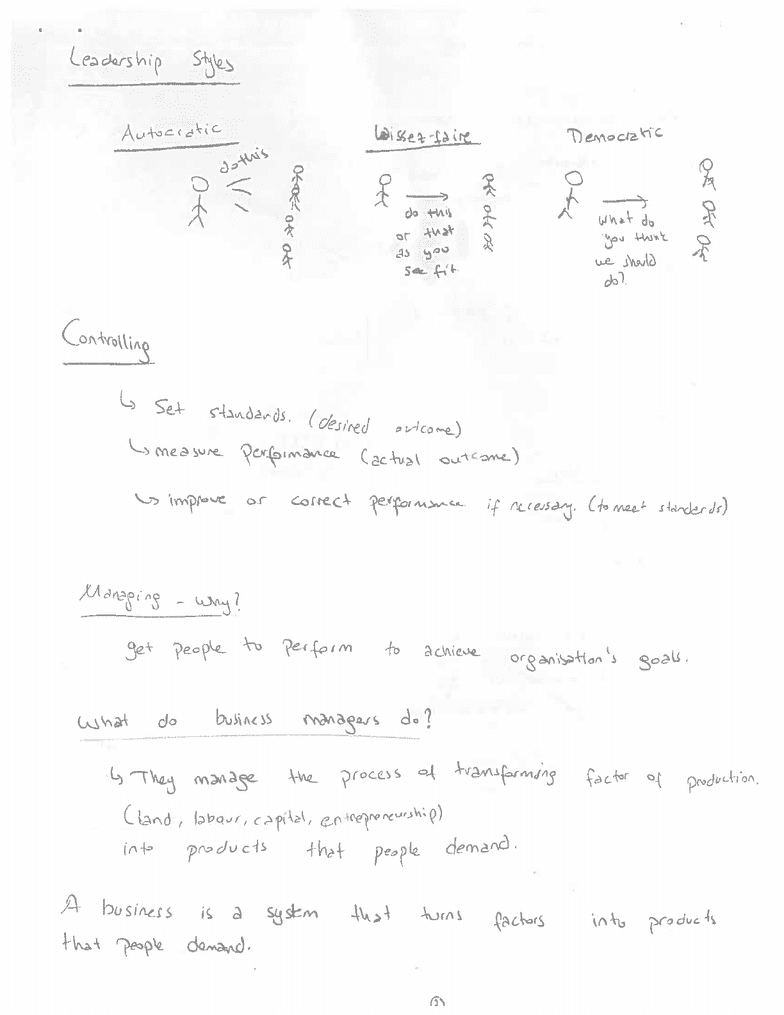 Leadership Styles
Autocratic
do this
Laissez-faire
do this
or that
as you
see fit
Democratic
what do
you think
we should
do?
Controlling
↳ Set standards. (desired outcome)
↳ measure performance (actual outcome)
↳ improve or correct performance if necessary. (to meet standards)
Managing - why?
get people to perform to achieve organisation's goals.
What do business managers do?
↳ They manage the process of transforming factor of production.
(land, labour, capital, entrepreneurship)
into products that people demand.
A business is a system that turns factors into products
that people demand.